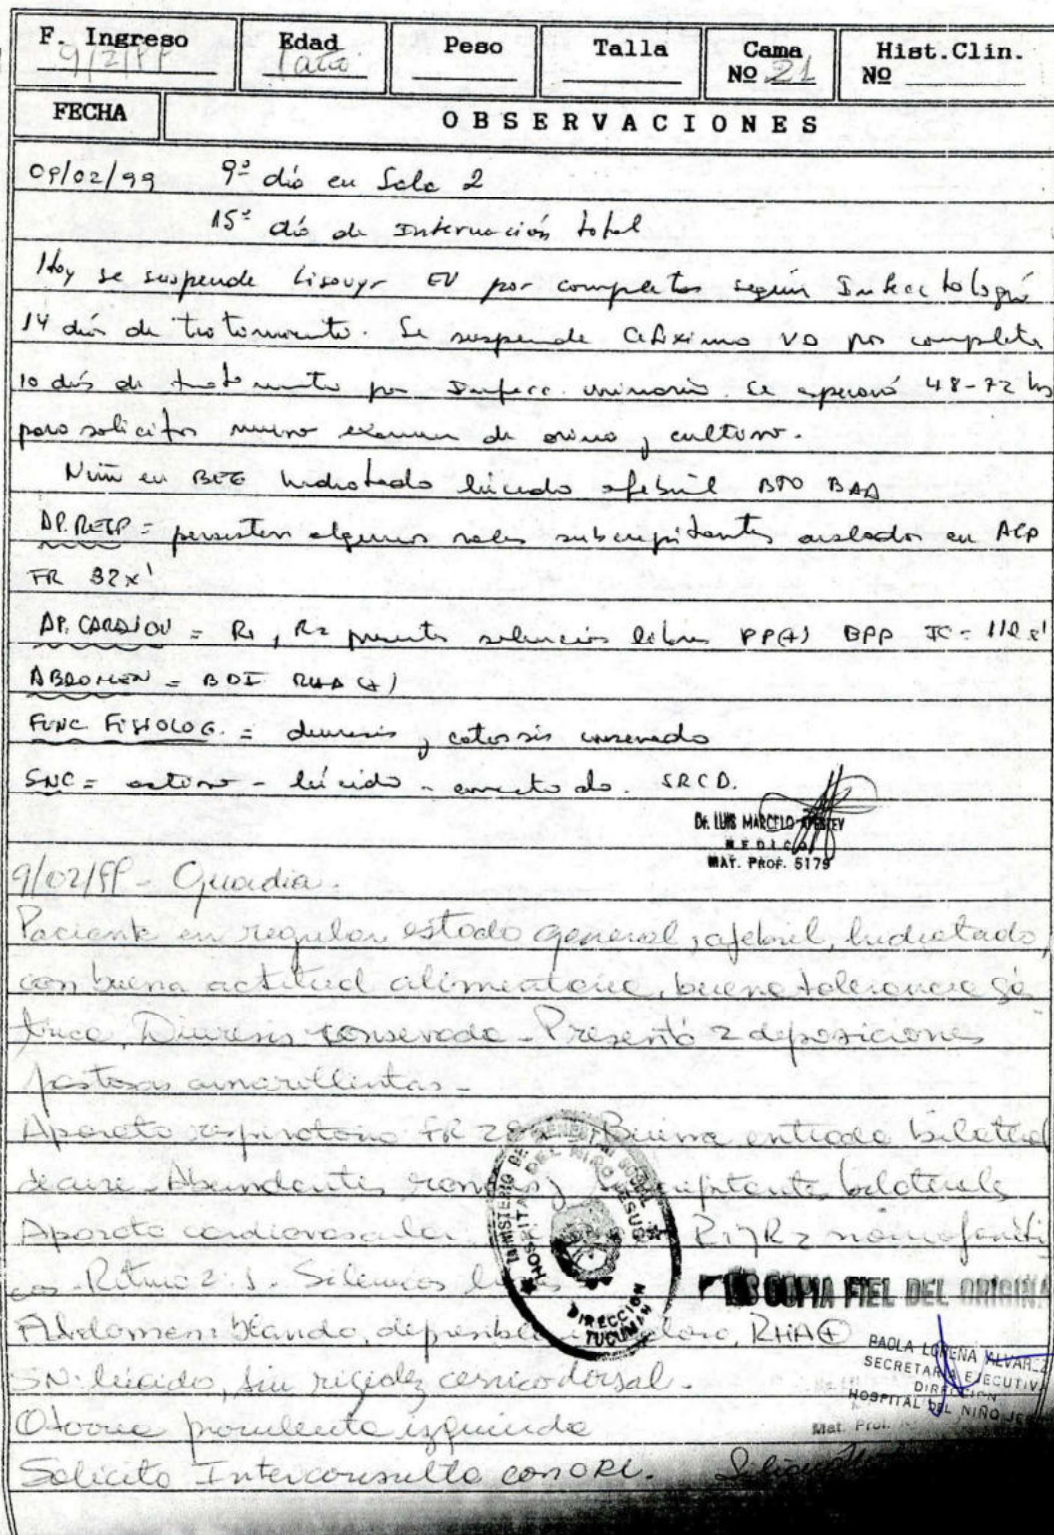 F. Ingreso Edad Peso Talla Cama Hist.Clin.
9/2/99 1 año Nº 21 Nº
FECHA OBSERVACIONES
09/02/99 9º día en Sala 2
15º día de Internación total
Hoy se suspende Lisovyr EV por completar según Infectología
14 días de tratamiento. Se suspende Cefixima VO por completar
10 días de tratamiento por Infecc. urinaria. Se esperará 48-72 hs
para solicitar nuevo examen de orina y cultivo.
Niño en BEG hidratado lúcido afebril BTO BAA
AP. RESP = persisten algunos rales subcrepitantes aislados en ACP
FR 32x'
AP. CARDIOV = R1, R2 presentes silencios libres PP(+) BPP FC = 112 x'
ABDOMEN = BDI RHA (+)
FUNC. FISIOLOG. = diuresis y catarsis conservada
SNC = activo - lúcido - conectado. SRCD.
Dr. LUIS MARCELO
MEDICO
MAT. PROF. 5179
9/02/99 - Guardia.
Paciente en regular estado general, afebril, hidratado,
con buena actitud alimentaria, buena tolerancia gás
trica. Diuresis conservada - Presentó 2 deposiciones
pastosas amarillentas -
Aparato respiratorio FR Buena entrada bilateral
de aire. Abundantes roncus y bilaterales
Aparato cardiovascular R1 y R2 normofonéti
cos. Ritmo 2. Silencios
Abdomen: blando, depresible, RHA (+)
SN: lúcido, sin rigidez cervicodorsal.
Otorrea purulenta izquierda
Solicito Interconsulta con ORL.
MINISTERIO DE BIENESTAR SOCIAL
HOSPITAL DEL NIÑO JESUS
DIRECCION
TUCUMAN
ES COPIA FIEL DEL ORIGINAL
PAOLA LORENA ALVAREZ
SECRETARIA EJECUTIVA
DIRECCION
HOSPITAL DEL NIÑO JESUS
Mat. Prof.